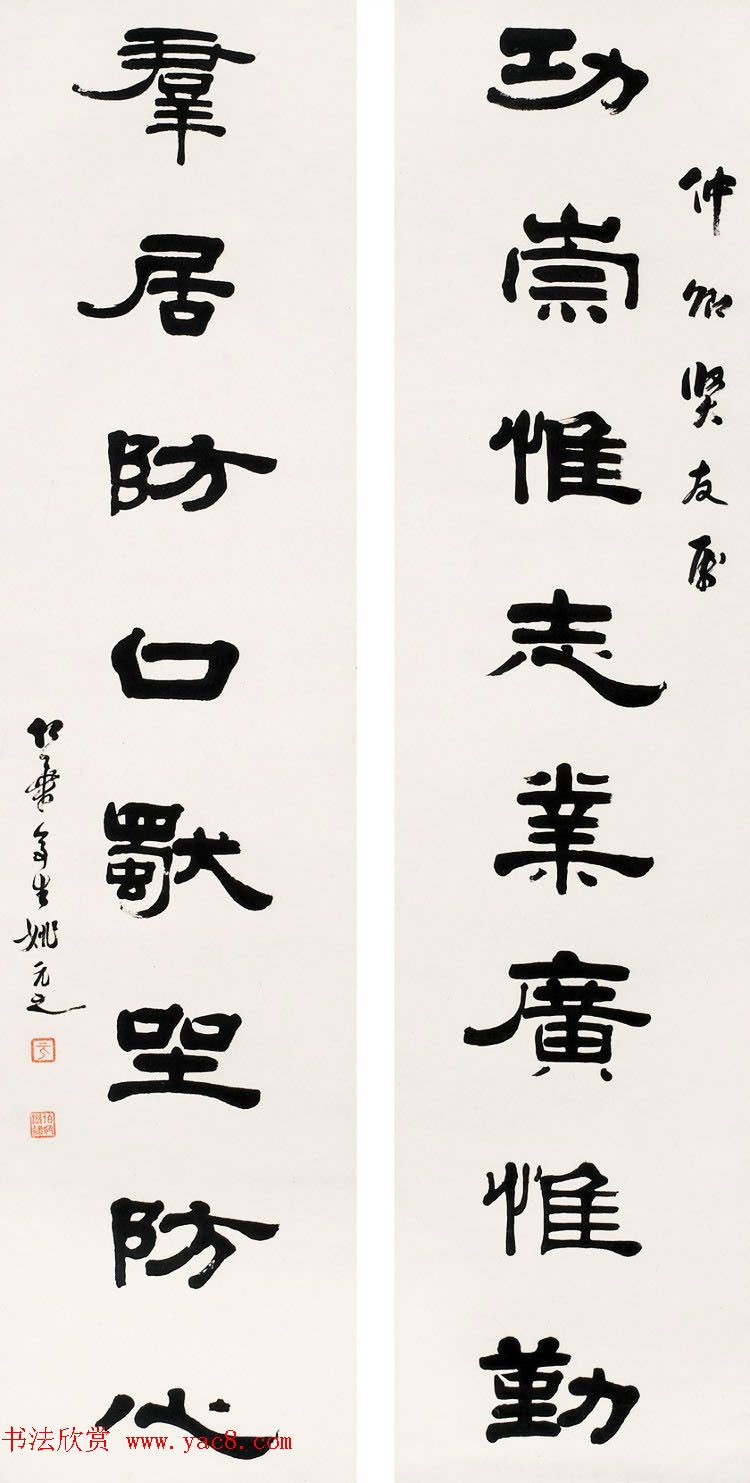 仲卿賢友屬
功崇惟志業廣惟勤
羣居防口獨坐防心
竹葉亭生姚元之
书法欣赏 www.yac8.com